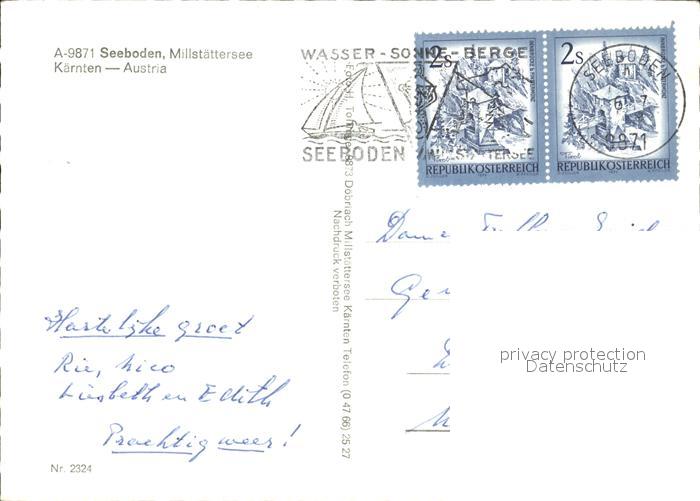 A-9871 Seeboden, Millstättersee
Kärnten — Austria
WASSER - SONNE - BERGE
SEEBODEN MILLSTÄTTERSEE
2s
REPUBLIK ÖSTERREICH
2s
REPUBLIK ÖSTERREICH
SEEBODEN
9871
9873 Döbriach Millstättersee Kärnten Telefon (0 47 66) 25 27
Nachdruck verboten
Hartelijke groet
Ria, Nico
Liesbeth en Edith
Prachtig weer!
privacy protection
Datenschutz
Nr. 2324